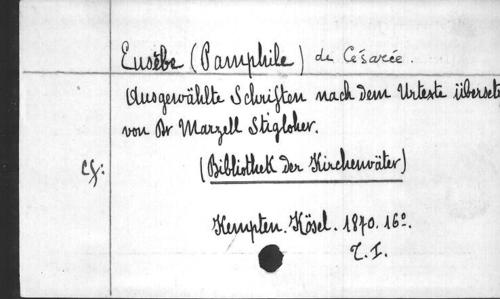 Eusèbe (Pamphile) de Césarée.
Ausgewählte Schriften nach dem Urtexte überset
von Dr Marzell Stigloher.
Cf: (Bibliothek der Kirchenväter)
Kempten. Kösel. 1870. 16º.
T. I.